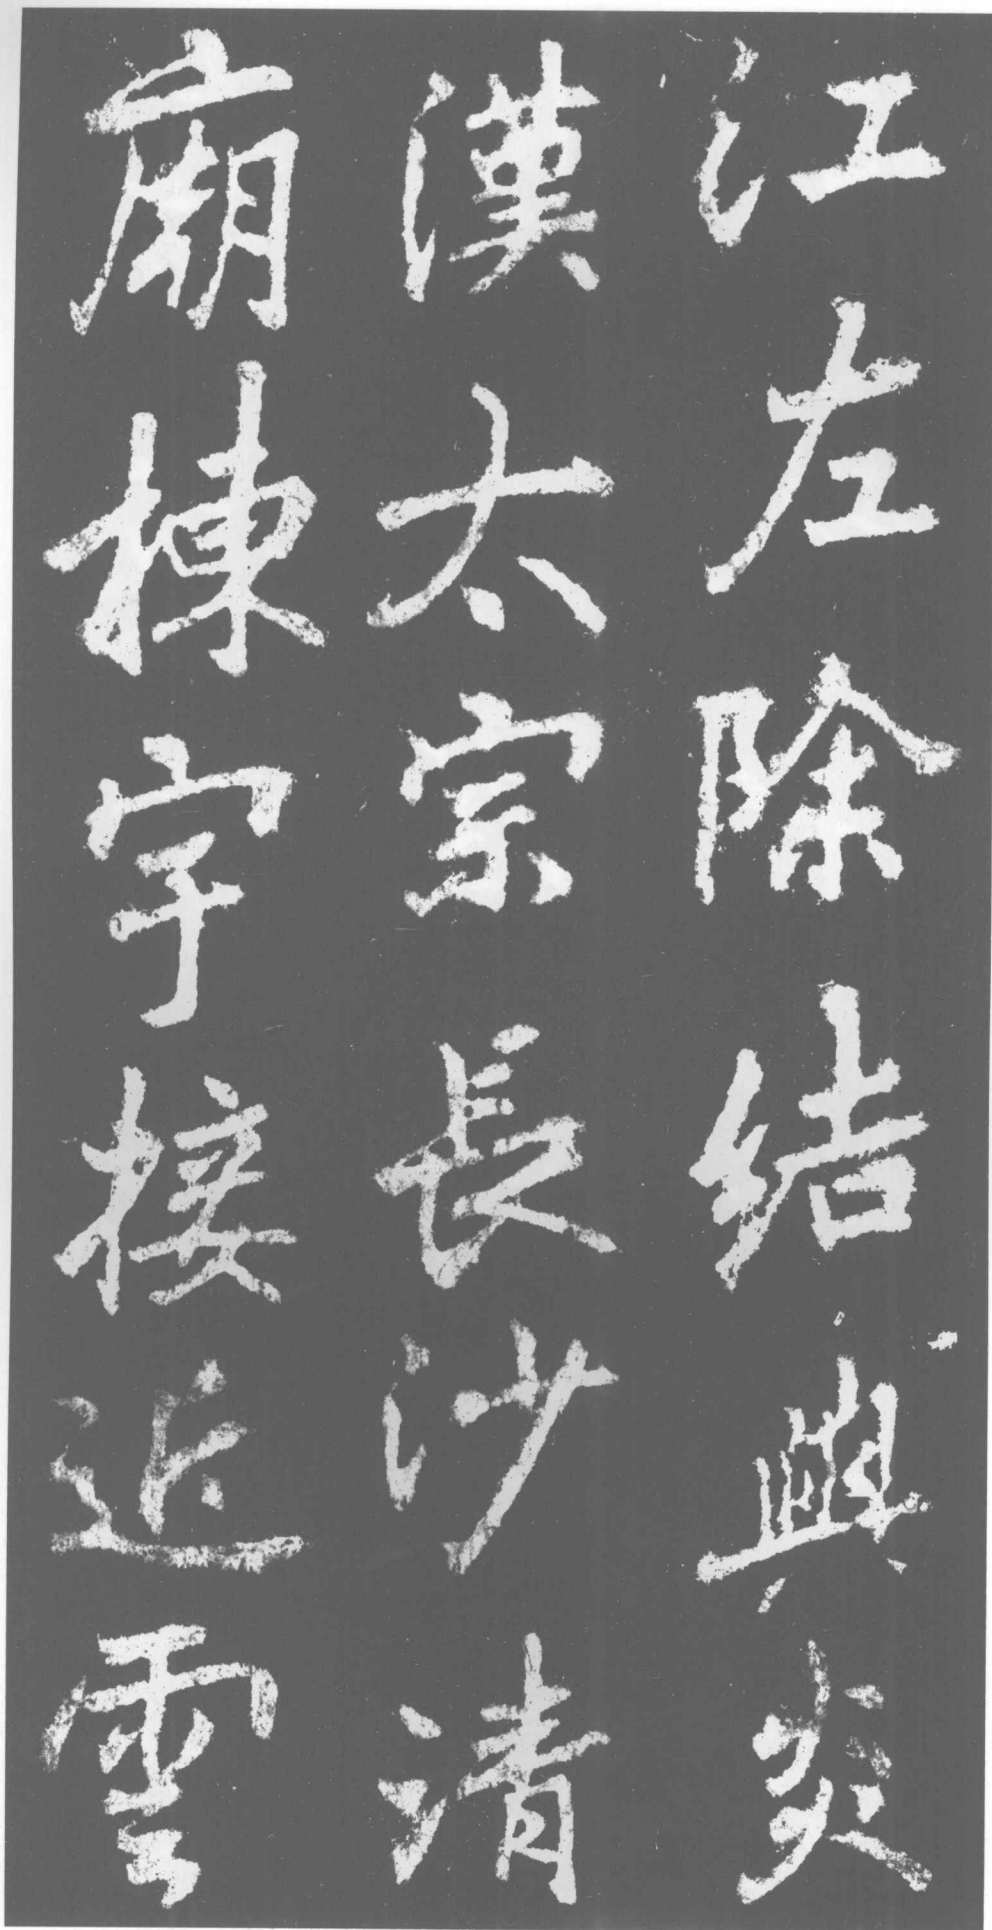 江左除結興炎
漢太宗長沙清
廟棟宇接近雲